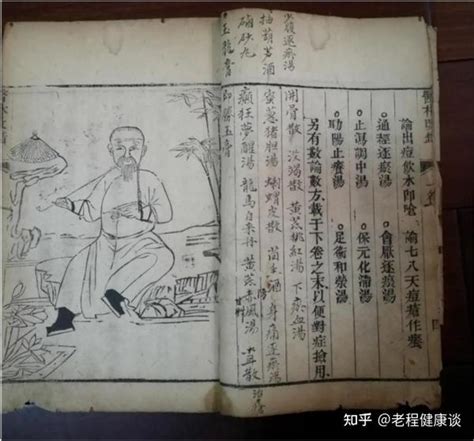 醫林改錯
論出痘飲水即嗆 論七八天痘瘡作癢
通經逐瘀湯 會厭逐瘀湯
止瀉調中湯 保元化滯湯
助陽止癢湯 足衛和榮湯
另有數論數方載于下卷之末以便對症撿用
開骨散 沒竭散 黃芪桃紅湯 下瘀血湯
蜜葱猪胆湯 刺猬皮散 身痛逐瘀湯
癲狂夢醒湯 龍馬自來丹 黃芪赤風湯
少腹逐瘀湯
抽葫芦酒
硇砂丸
玉龍膏 即勝玉膏
知乎 @老程健康谈